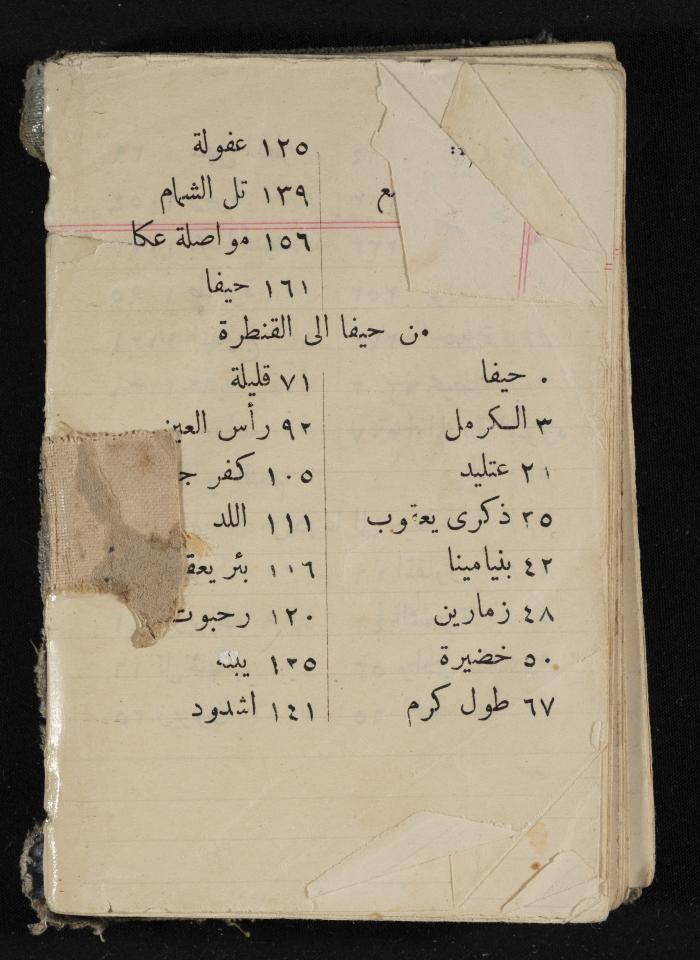 ١٢٥ عفولة
١٣٩ تل الشمام
١٥٦ مواصلة عكا
١٦١ حيفا
من حيفا الى القنطرة
٠ حيفا
٣ الكرمل
٢١ عتليد
٣٥ ذكرى يعقوب
٤٢ بنيامينا
٤٨ زمارين
٥٠ خضيرة
٦٧ طول كرم
٧١ قليلة
٩٢ رأس العين
١٠٥ كفر
١١١ اللد
١١٦ بئر
١٢٠ رحبوت
١٢٥ يبنه
١٤١ اشدود